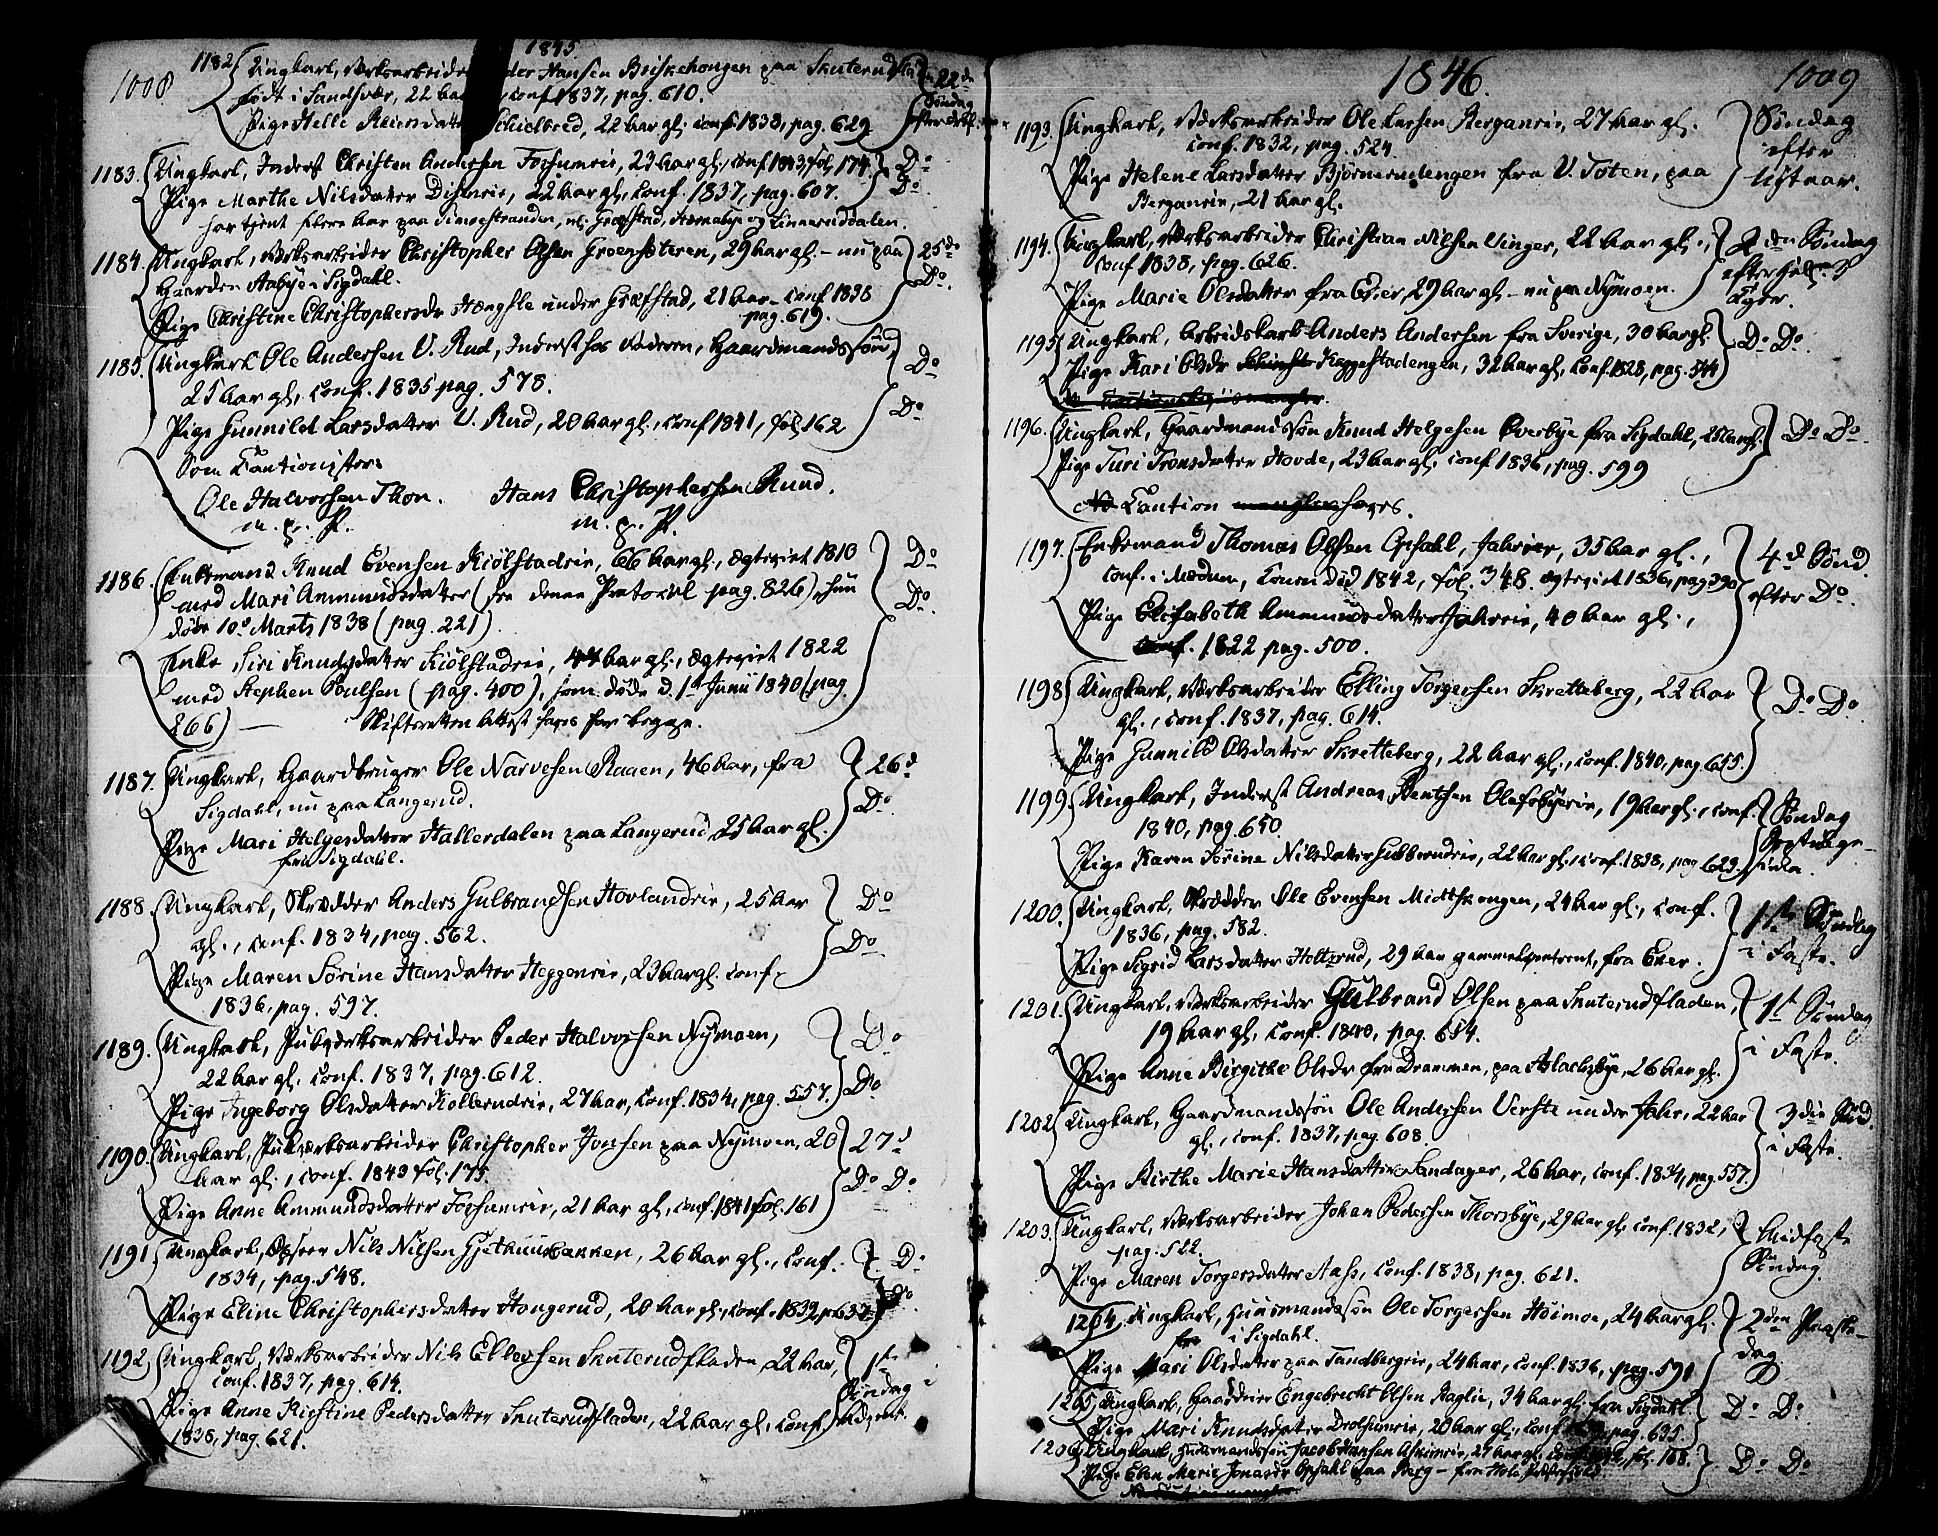 1008
1845
1182 Ungkarl, Værksarbeider Hansen Briskehougen paa Skuterudfla
født i Sandsvær, 22 conf 1837, pag. 610.
Pige Helle 22 aar gl. conf. 1838, pag. 629
22de Søndag efter
1183. Ungkarl, Inderst Christen Andersen Fossumeie, 23 aar gl., conf. 1843, fol. 174.
Pige Marthe Nilsdatter 22 aar gl., conf. 1837, pag. 607.
har tjent flere aar paa Græfstad, og
Do
Do
1184. Ungkarl, Værksarbeider Christopher Olsen Groensæteren, 29 aar gl. – nu paa
Gaarden Aabye i Sigdahl.
Pige Christine Christophersdr under Græfstad, 21 aar – conf 1838
pag. 619.
25de
Do.
1185. Ungkarl Ole Andersen V. Rud, Inderst hos Faderen, Gaardmandssøn,
25 aar gl., conf. 1835 pag. 578.
Pige Gunnild Larsdatter V. Rud, 20 aar gl., conf 1841, fol. 162
Do
Do
Som Cautionister:
Ole Halvorsen Thon. Hans Christophersen Ruud.
m. p. P. m. p. P.
1186. Enkemand Knud Evensen Kiølstadeie, 66 aar gl., ægteviet 1810
med Mari Ammundsdatter (se denne Protocol pag. 826), hun
døde 10de Marts 1838 (pag. 221).
Enke Siri Knudsdatter Kiølstadeie, 44 aar gl., ægteviet 1822
med Stephen Poulsen (pag. 400), som døde d. 1st Junii 1840 (pag
266) — Skifterettens Attest haves for begge.
Do
Do.
1187. Ungkarl, Gaardbruger Ole Narvesen Raaen, 46 aar, fra
Sigdahl, nu paa Langerud.
Pige Mari Helgesdatter Hallerdalen paa Langerud, 25 aar gl.
fra Sigdahl.
26d
Do
1188. Ungkarl, Skrædder Anders Gulbrandsen Hovlandeie, 25 aar
gl., conf. 1834, pag. 562.
Pige Maren Sørine Hansdatter Heggeneie, 23 aar gl. conf.
1836, pag. 597.
Do
Do
1189. Ungkarl, Pukværksarbeider Peder Halvorsen Nymoen,
22 aar gl. conf. 1837, pag. 612.
Pige Ingeborg Olsdatter Kollerudeie, 27 aar, conf. 1834, pag. 557.
Do
Do
1190. Ungkarl, Pukværksarbeider Christopher Jonsen paa Nymoen, 20
aar gl., conf. 1843 fol. 175.
Pige Anne Ammundsdatter Fossumeie, 21 aar gl., conf. 1841 fol. 161
27d
Do Do
1191 Ungkarl, Nils Nilsen Gjethuusbakken, 26 aar gl., conf.
1834, pag. 548.
Pige Eline Christophersdatter Hougerud, 20 aar gl., conf. 1839, p. 637
Do
Do.
1192. Ungkarl, Værksarbeider Nils Ellevsen Skuterudfladen, 22 aar,
conf. 1837, pag. 614.
Pige Anne Kirstine Pedersdatter Skuterudfladen, 22 aar gl., conf.
1838, pag. 621.
1ste Søndag i Advent.
1846. 1009
1193. Ungkarl, Værksarbeider Ole Larsen Berganeie, 27 aar gl.
conf. 1832, pag. 524
Pige Helene Larsdatter Bjørnerudengen fra V. Toten, paa
Berganeie, 21 aar gl.
Søndag
efter
Nytaar.
1194. Ungkarl, Værksarbeider Christian Nilsen Vinger, 22 aar gl.,
conf 1838, pag. 626.
Pige Marie Olsdatter fra Eker, 29 aar gl. – nu paa Nymoen.
2den Søndag
efter
1195 Ungkarl, Arbeidskarl Anders Andersen fra Sverige, 30 aar gl.
Pige Kari Olsdr Heggestadengen, 32 aar gl., conf. 1828, pag. 544
Do Do.
1196. Ungkarl, Gaardmandssøn Knud Helgesen Overbye fra Sigdahl, 25 aar gl.
Pige Turi Tronsdatter Hovde, 23 aar gl. conf 1836, pag. 599
Caution haves.
Do Do
1197. Enkemand Thomas Olsen Opsahl, Jahreie, 35 aar gl.,
conf. i Modum, Konen død 1842, fol. 348. ægteviet 1836, pag 990
Pige Elisabeth Ammundsdatter Jahreie, 40 aar gl.,
conf. 1822 pag. 500.
4d Sønd.
efter Do.
1198 Ungkarl, Værksarbeider Elling Torgersen Skretteberg, 22 aar
gl., conf. 1837, pag. 614.
Pige Gunnild Olsdatter Skretteberg, 22 aar gl., conf. 1840, pag. 655.
Do Do.
1199 Ungkarl, Inderst Andreas Bentsen Olafsbyeie, 19 aar gl., conf.
1840, pag. 650.
Pige Karen Sørine Nilsdatter Gubberudeie, 22 aar gl., conf. 1838, pag. 629.
Søndag
1200. Ungkarl, Skrædder Ole Evensen Midtskougen, 24 aar gl., conf.
1836, pag. 582.
Pige Sigrid Larsdatter Holterud, 29 aar gammel, fra Eker.
1ste Søndag
i Faste.
1201. Ungkarl, Værksarbeider Gulbrand Olsen paa Skuterudfladen,
19 aar gl., conf. 1840, pag. 654.
Pige Anne Birgithe Olsdr fra Drammen, paa Aslachsbye, 26 aar gl.
1st Søndag
i Faste.
1202 Ungkarl, Gaardmandssøn Ole Andersen Verste under Jahr, 22 aar
gl., conf. 1837, pag. 608.
Pige Birthe Marie Hansdatter Sandager, 26 aar, conf. 1834, pag. 557.
3die Sønd.
i Faste.
1203. Ungkarl, Værksarbeider Johan Pedersen Thorsbye, 29 aar gl., conf. 1832,
pag. 522.
Pige Maren Torgersdatter Aass, conf. 1838, pag. 621.
Midfaste
Søndag.
1204. Ungkarl, Huusmandssøn Ole Torgersen Høimoe, 24 aar gl.
i Sigdahl.
Pige Mari Olsdatter paa Tandbergeie, 24 aar, conf. 1836, pag. 591
2den Paaske-
dag
1205 Ungkarl, Engebrecht Olsen 34 aar gl. fra Sigdahl
Pige Mari Knudsdatter Drolsumeie, 20 aar gl., conf. pag. 635.
Do Do.
1206 Ungkarl, Huusmandssøn Jacob Hansen 27 aar gl., fol. 168.
Pige Marie Opsahl paa Berg – fra
Do Do